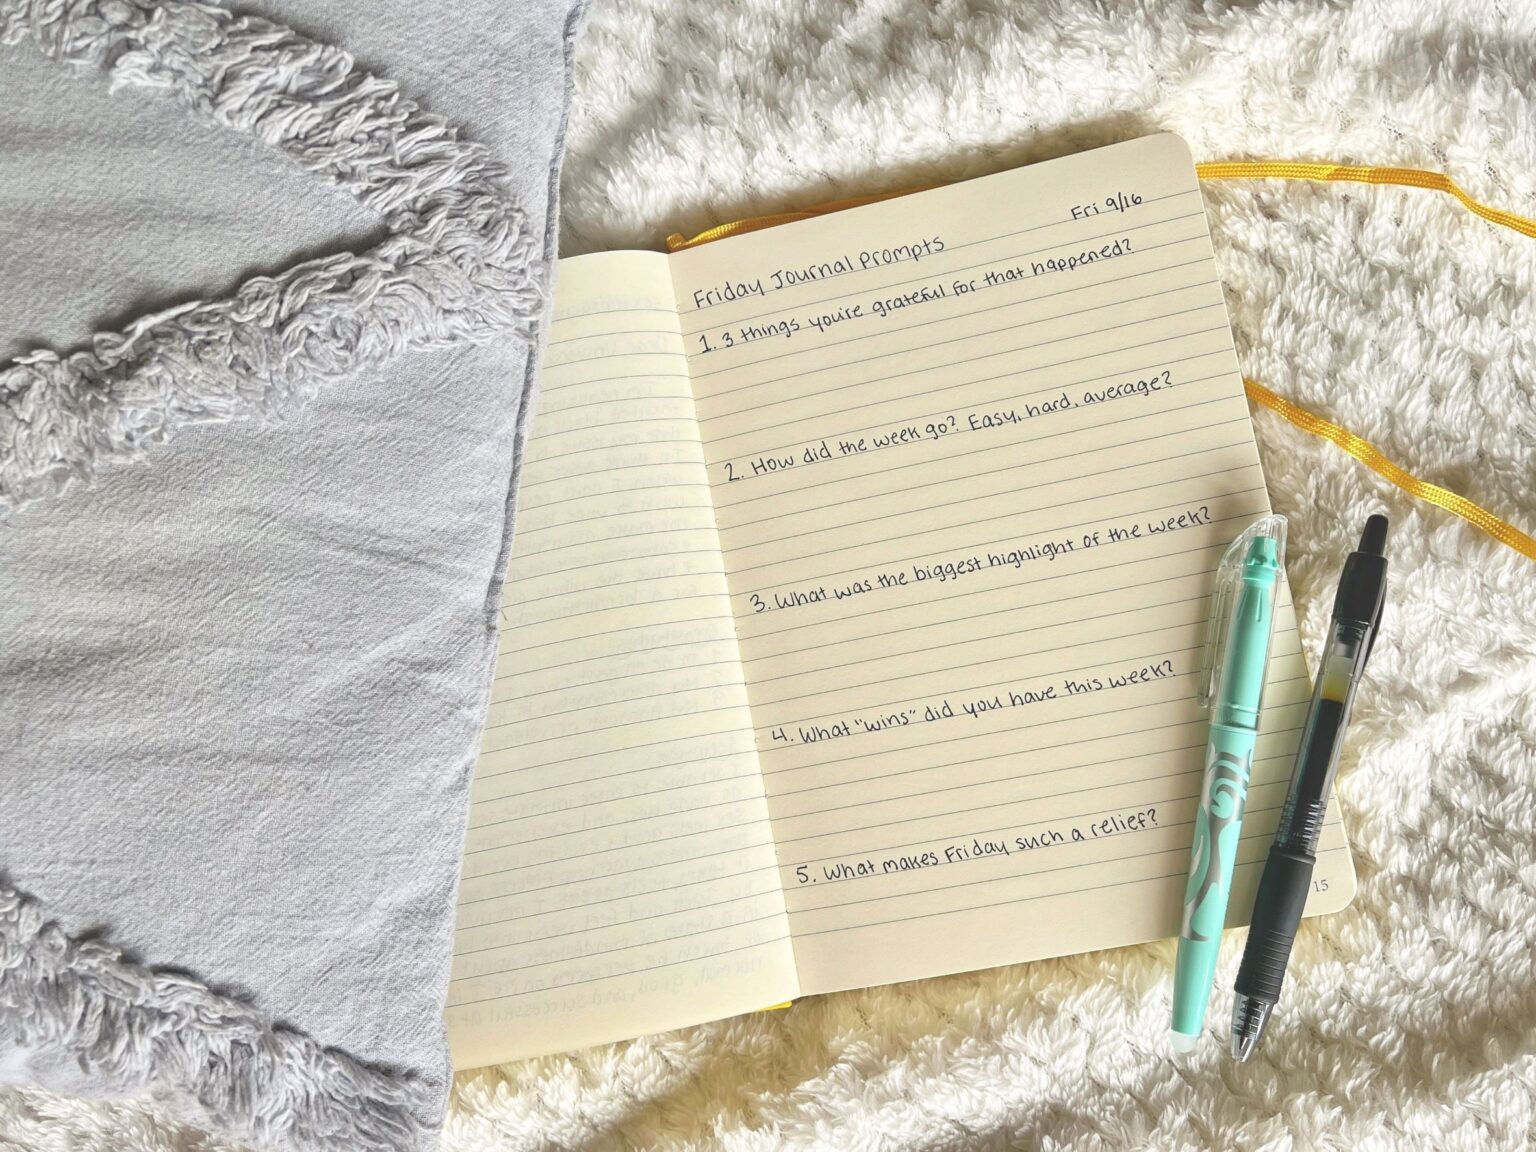 Fri 9/16
Friday Journal Prompts
1. 3 things you're grateful for that happened?
2. How did the week go? Easy, hard, average?
3. What was the biggest highlight of the week?
4. What "wins" did you have this week?
5. What makes Friday such a relief?
15